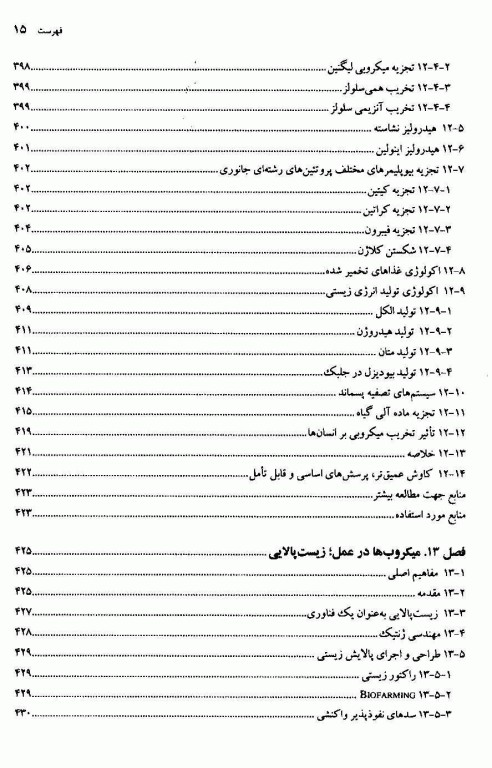 فهرست ۱۵
۱۲-۴-۲ تجزیه میکروبی لیگنین ۳۹۸
۱۲-۴-۳ تخریب همی‌سلولز ۳۹۹
۱۲-۴-۴ تخریب آنزیمی سلولز ۳۹۹
۱۲-۵ هیدرولیز نشاسته ۴۰۰
۱۲-۶ هیدرولیز اینولین ۴۰۱
۱۲-۷ تجزیه بیوپلیمرهای مختلف پروتئین‌های رشته‌ای جانوری ۴۰۲
۱۲-۷-۱ تجزیه کیتین ۴۰۲
۱۲-۷-۲ تجزیه کراتین ۴۰۲
۱۲-۷-۳ تجزیه فیبرون ۴۰۴
۱۲-۷-۴ شکستن کلاژن ۴۰۵
۱۲-۸ اکولوژی غذاهای تخمیر شده ۴۰۶
۱۲-۹ اکولوژی تولید انرژی زیستی ۴۰۸
۱۲-۹-۱ تولید الکل ۴۰۹
۱۲-۹-۲ تولید هیدروژن ۴۱۱
۱۲-۹-۳ تولید متان ۴۱۱
۱۲-۹-۴ تولید بیودیزل در جلبک ۴۱۳
۱۲-۱۰ سیستم‌های تصفیه پسماند ۴۱۴
۱۲-۱۱ تجزیه ماده آلی گیاه ۴۱۵
۱۲-۱۲ تأثیر تخریب میکروبی بر انسان‌ها ۴۱۹
۱۲-۱۳ خلاصه ۴۲۱
۱۲-۱۴ کاوش عمیق‌تر، پرسش‌های اساسی و قابل تأمل ۴۲۲
منابع جهت مطالعه بیشتر ۴۲۳
منابع مورد استفاده ۴۲۳
فصل ۱۳. میکروب‌ها در عمل؛ زیست‌پالایی ۴۲۵
۱۳-۱ مفاهیم اصلی ۴۲۵
۱۳-۲ مقدمه ۴۲۵
۱۳-۳ زیست‌پالایی به‌عنوان یک فناوری ۴۲۷
۱۳-۴ مهندسی ژنتیک ۴۲۸
۱۳-۵ طراحی و اجرای پالایش زیستی ۴۲۹
۱۳-۵-۱ راکتور زیستی ۴۲۹
۱۳-۵-۲ BIOFARMING ۴۲۹
۱۳-۵-۳ سدهای نفوذپذیر واکنشی ۴۳۰